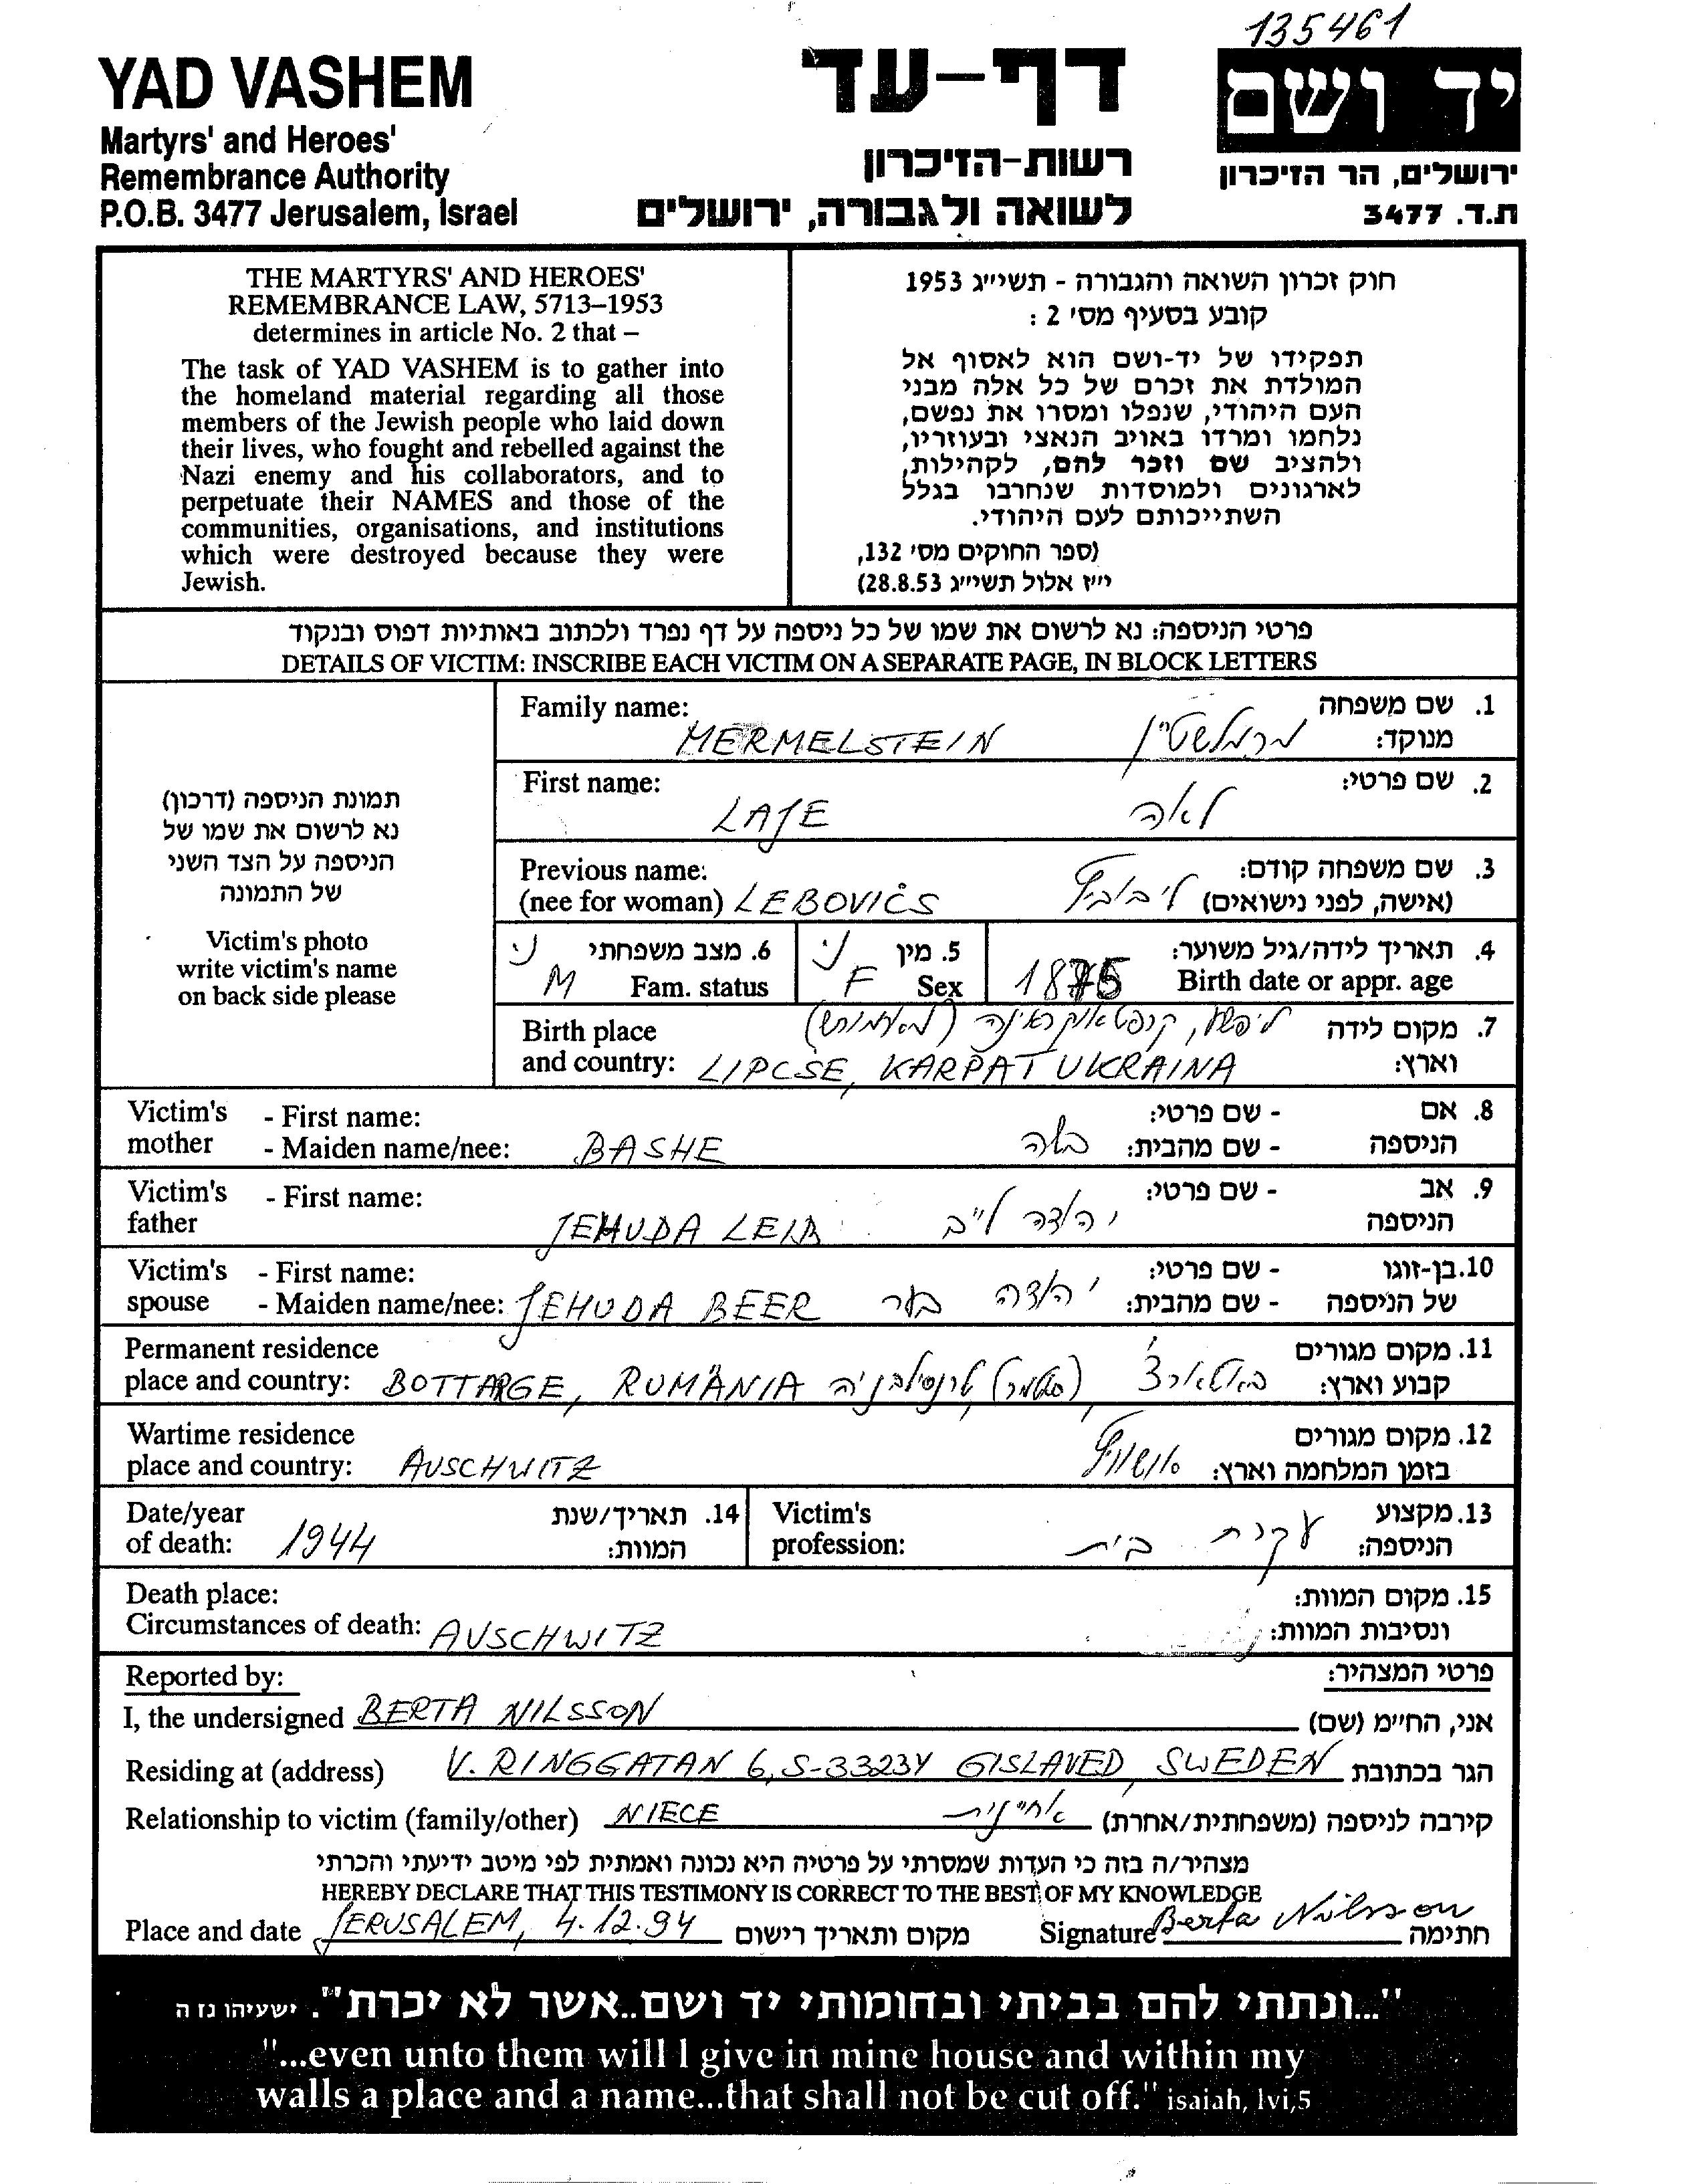 135461
YAD VASHEM
Martyrs' and Heroes'
Remembrance Authority
P.O.B. 3477 Jerusalem, Israel
דף-עד
רשות-הזיכרון
לשואה ולגבורה, ירושלים
יד ושם
ירושלים, הר הזיכרון
ת.ד. 3477
THE MARTYRS' AND HEROES'
REMEMBRANCE LAW, 5713–1953
determines in article No. 2 that –
The task of YAD VASHEM is to gather into
the homeland material regarding all those
members of the Jewish people who laid down
their lives, who fought and rebelled against the
Nazi enemy and his collaborators, and to
perpetuate their NAMES and those of the
communities, organisations, and institutions
which were destroyed because they were
Jewish.
חוק זכרון השואה והגבורה - תשי״ג 1953
קובע בסעיף מס׳ 2 :
תפקידו של יד-ושם הוא לאסוף אל
המולדת את זכרם של כל אלה מבני
העם היהודי, שנפלו ומסרו את נפשם,
נלחמו ומרדו באויב הנאצי ובעוזריו,
ולהציב שם וזכר להם, לקהילות,
לארגונים ולמוסדות שנחרבו בגלל
השתייכותם לעם היהודי.
(ספר החוקים מס׳ 132,
י״ז אלול תשי״ג 28.8.53)
פרטי הניספה: נא לרשום את שמו של כל ניספה על דף נפרד ולכתוב באותיות דפוס ובנקוד
DETAILS OF VICTIM: INSCRIBE EACH VICTIM ON A SEPARATE PAGE, IN BLOCK LETTERS
תמונת הניספה (דרכון)
נא לרשום את שמו של
הניספה על הצד השני
של התמונה
Victim's photo
write victim's name
on back side please
Family name: 1. שם משפחה
MERMELSTEIN מרמלשטיין מנוקד:
First name: 2. שם פרטי:
LAJE לאה
Previous name: 3. שם משפחה קודם:
(nee for woman) LEBOVICS ליבוביץ (אישה, לפני נישואים)
6. מצב משפחתי נ׳ 5. מין נ׳ 4. תאריך לידה/גיל משוער:
M Fam. status F Sex 1875 Birth date or appr. age
Birth place ליפשע, קרפטאוקראינה (מארמורש) 7. מקום לידה
and country: LIPCSE, KARPAT UKRAINA וארץ:
Victim's - First name: - שם פרטי: 8. אם
mother - Maiden name/nee: BASHE בשה - שם מהבית: הניספה
Victim's - First name: - שם פרטי: 9. אב
father JEHUDA LEIB יהודה לייב הניספה
Victim's - First name: - שם פרטי: 10. בן-זוגו
spouse - Maiden name/nee: JEHUDA BEER יהודה בער - שם מהבית: של הניספה
Permanent residence 11. מקום מגורים
place and country: BOTTARGE, RUMÄNIA (סטמר) טרנסילבניה קבוע וארץ:
Wartime residence 12. מקום מגורים
place and country: AUSCHWITZ אושוויץ בזמן המלחמה וארץ:
Date/year 14. תאריך/שנת Victim's 13. מקצוע
of death: 1944 המוות: profession: עקרת בית הניספה:
Death place: 15. מקום המוות:
Circumstances of death: AUSCHWITZ ונסיבות המוות:
Reported by: פרטי המצהיר:
I, the undersigned BERTA NILSSON אני, החי״מ (שם)
Residing at (address) V. RINGGATAN 6, S-33234 GISLAVED, SWEDEN הגר בכתובת
Relationship to victim (family/other) NIECE אחיינית קירבה לניספה (משפחתית/אחרת)
מצהיר/ה בזה כי העדות שמסרתי על פרטיה היא נכונה ואמתית לפי מיטב ידיעתי והכרתי
HEREBY DECLARE THAT THIS TESTIMONY IS CORRECT TO THE BEST OF MY KNOWLEDGE
Place and date JERUSALEM, 4.12.94 מקום ותאריך רישום Signature Berta Nilsson חתימה
"...ונתתי להם בביתי ובחומותי יד ושם..אשר לא יכרת". ישעיהו נז ה
"...even unto them will I give in mine house and within my
walls a place and a name...that shall not be cut off." isaiah, lvi,5